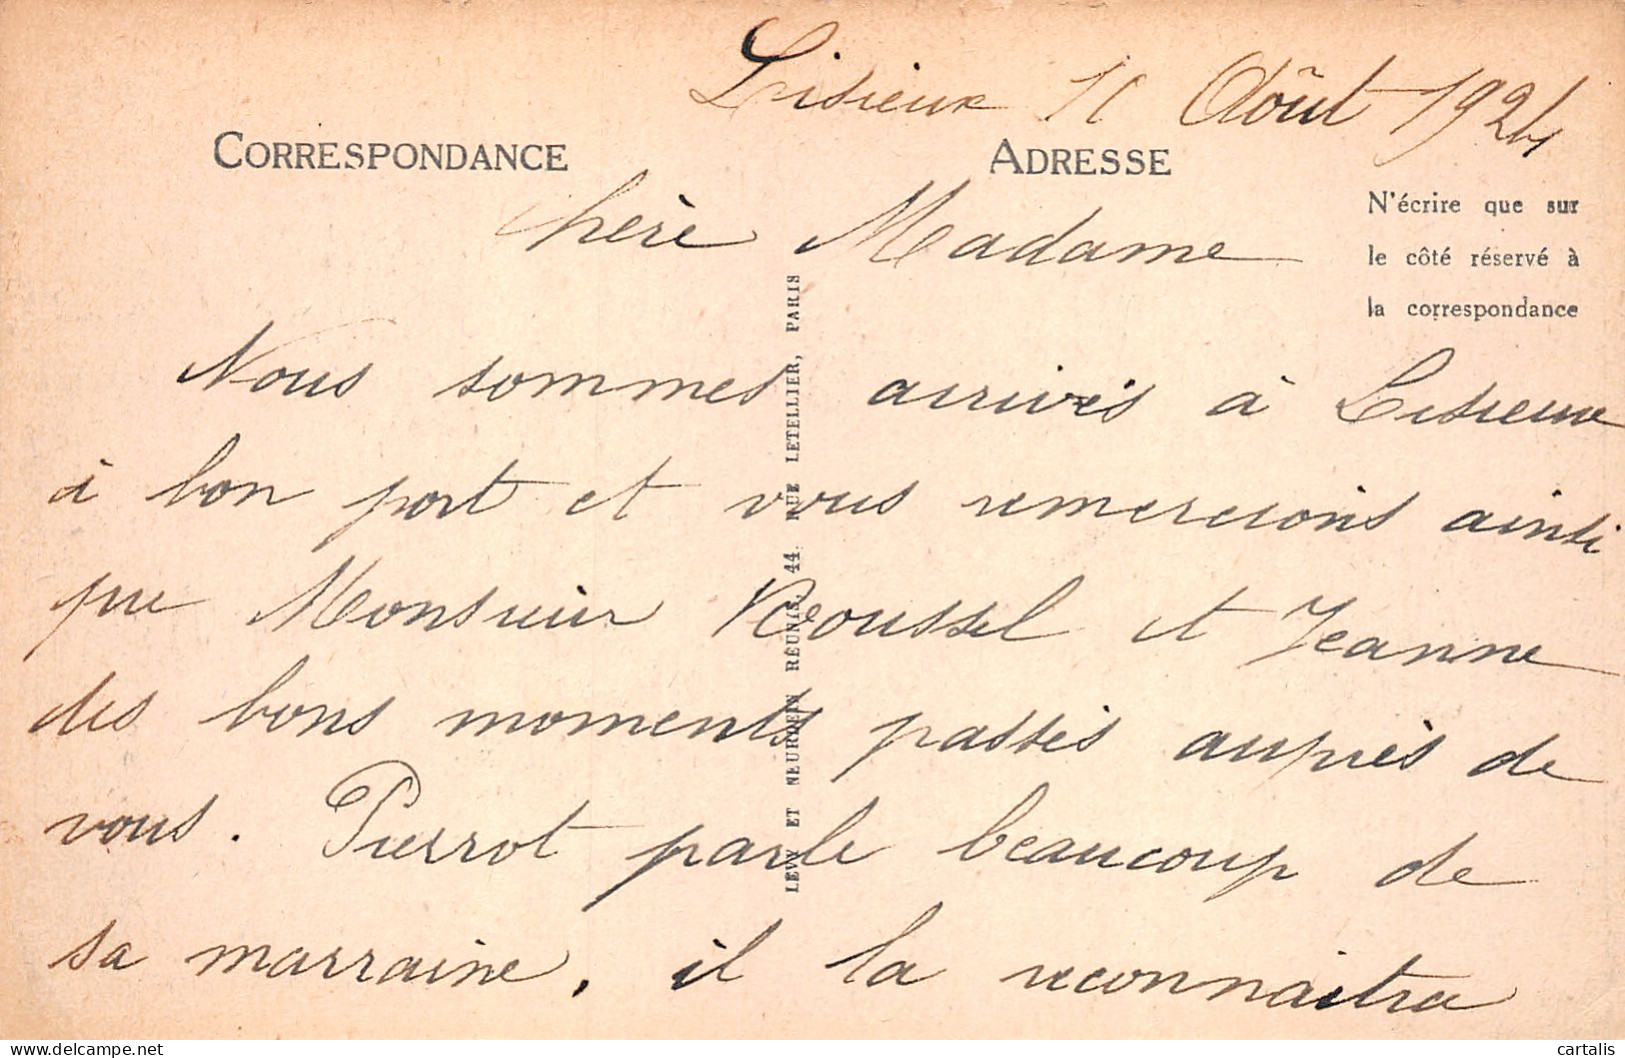 Lisieux 10 Août 1924
CORRESPONDANCE
ADRESSE
N'écrire que sur
le côté réservé à
la correspondance
Chère Madame
Nous sommes arrivés à Lisieux
à bon port et vous remercions ainsi
que Monsieur Roussel et Jeanne
des bons moments passés auprès de
vous. Pierrot parle beaucoup de
sa marraine, il la reconnaîtra
LÉVY ET NEURDEIN RÉUNIS, 44, RUE LETELLIER, PARIS
cartalis